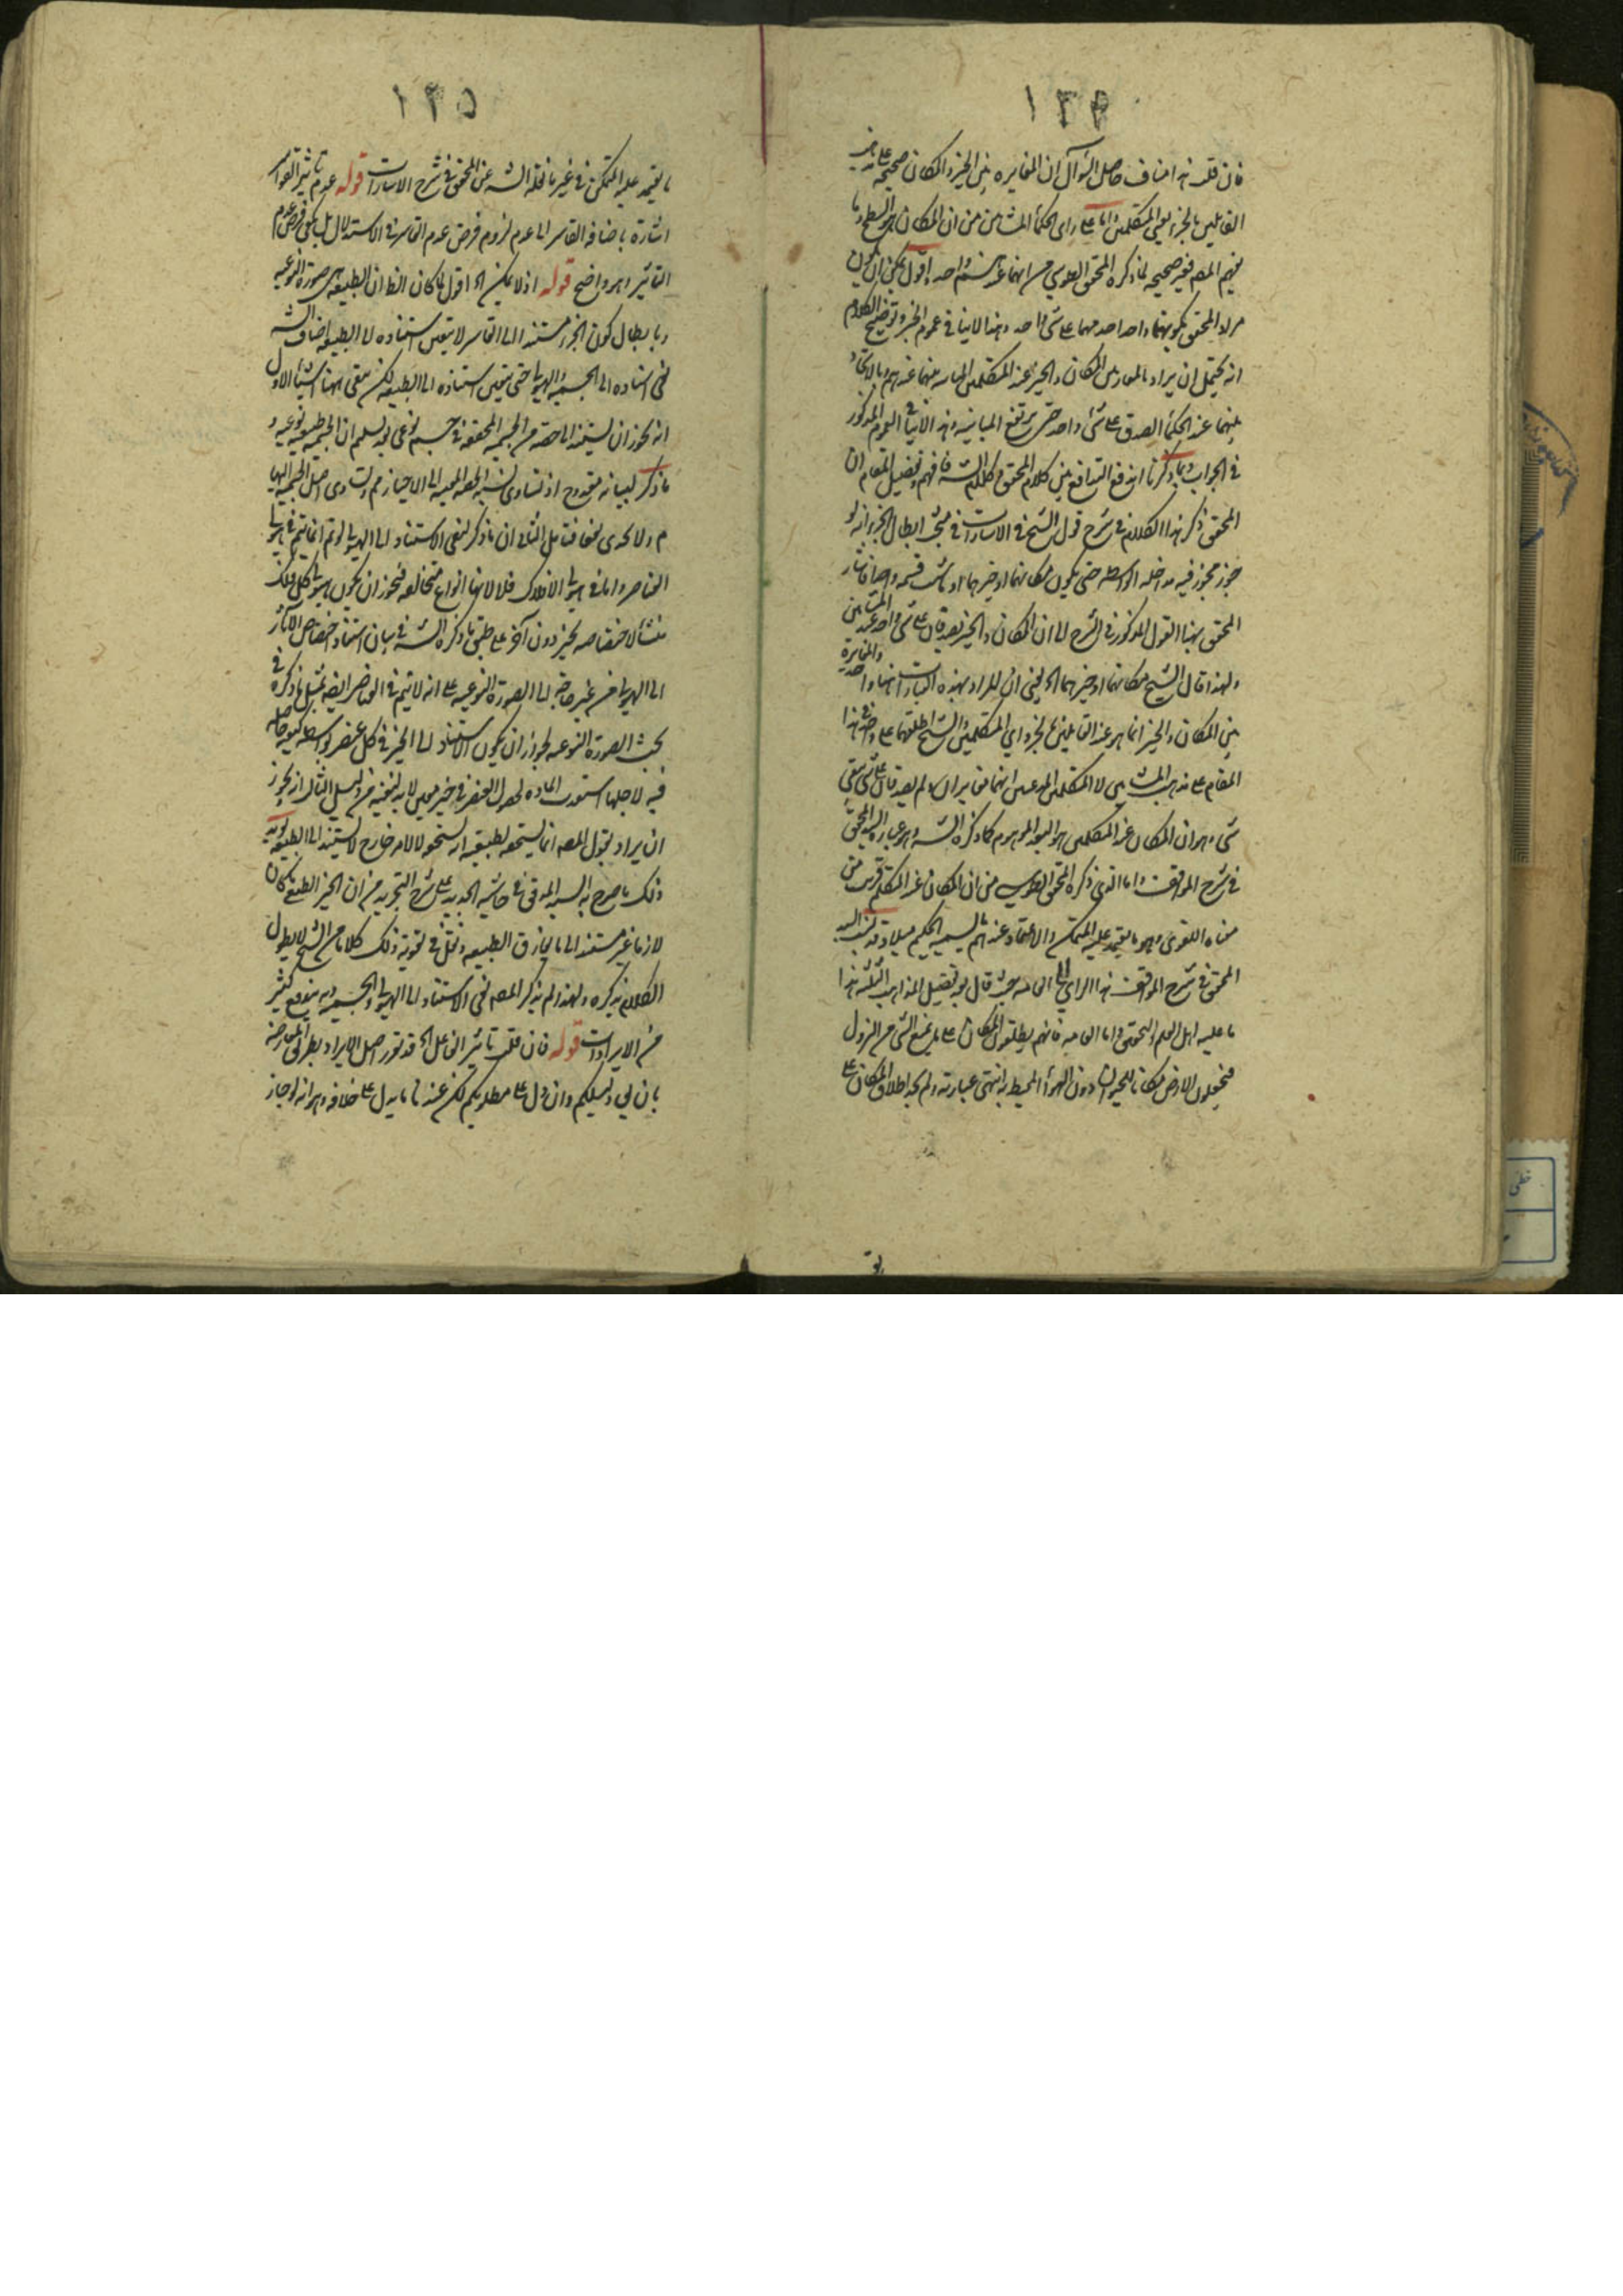 ١٣٤
فان قلت هذا مناف حاصل السؤال ان المغايرة بين الحيز والمكان صحيحة على مذهب
القايلين بالجزء يعني المتكلمين واما على راى الحكما المشائين من ان المكان هو السطح وما
يفهم المص فغير صحيحه لما ذكره المحقق الطوسي من انهما عندهم واحد اقول يمكن ان يكون
مراد المحقق بكونهما واحدا صدقهما على شي واحد وهذا لا ينافي عموم الحيز وتوضيح الكلام
انه يحتمل ان يراد بالمكان والحيز عند المتكلمين بينهما عندهم وبالاتحاد
بينهما عند الحكما الصدق على شي واحد حتى يرتفع المباينه وهذا لا ينافي العموم المذكور
في الجواب وبما ذكرنا اندفع التدافع بين كلام المحقق وكلام الشه فافهم وتفصيل المقام ان
المحقق ذكر هذا الكلام في شرح قول الشيخ في الاشارات في مبحث ابطال الجزء انه لو
جوز مجوز فيه مداخله الوسط حتى يكون مكانهما او حيزهما او ما شئت فسمه واحدا فاشار
المحقق بهذا القول المذكور في الشرح الى ان المكان والحيز يصدقان على شي واحد عند المشائين
ولهذا قال الشيخ مكانهما او حيزهما الخ يعني ان المراد بهذه العبارات هنا واحد والمغايرة
بين المكان والحيز انما هو عند القايلين بالجزء اي المتكلمين والشيخ اطلقهما على في هذا
المقام على مذهب المشائين لا المتكلمين انهما متغايران ولم يصدقا على شي بقي
شي وهو ان المكان عند المتكلمين هو البعد الموهوم كما ذكره الشه وهو عبارة السيد المحقق
في شرح المواقف واما الذي ذكره المحقق الطوسي من ان المكان عند المتكلم قريب من
معناه اللغوى وهو ما يعتمد عليه المتمكن والاعتماد عندهم ما يسميه الحكيم ميلا قد نسب السيد
المحقق في شرح المواقف هذا الراي الى العامه حيث قال بعد تفصيل المذاهب الثلثه هذا
ما عليه اهل العلم والتحقيق واما العامه فانهم يطلقون المكان على ما يمنع الشي من النزول
فيجعلون الارض مكانا للحيوان دون الهوا المحيط به انتهى عبارته ولم يجد اطلاق المكان على
١٣٥
ما يعتمد عليه المتمكن في غير ما نقله الشه عن المحقق في شرح الاشارات قوله عدم تاثير القواسر
اشارة باضافه القاسر الى عدم لزوم فرض عدم القاسر في الاستدلال بل يكفي فرض عدم
التاثير وهو واضح قوله اذ لا يمكن الخ اقول لما كان الظ ان الطبيعه هي صورة النوعيه
وبابطال كون الجزء مستندا الى القاسر لا يتعين استناده الى الطبيعه اضاف الشه
نفى استناده الى الجسميه والهيولى حتى يتعين استناده الى الطبيعه لكن يبقى ههنا اشياء الاول
انه يجوز ان يستند الى حصة من الجسميه المتحققه في جسم نوعي بعد تسليم ان الجسميه طبيعه نوعيه و
ما ذكر لبيانه مقدوح اذ تساوى نسبه الحصه المعينه الى الاحياز مم وتساوى اصل الجسميه اليها
م ولا يجدى نفعا فتامل الثاني ان ما ذكر لنفى الاستناد الى الهيولى لو تم انما يتم في هيولى
العناصر واما في هيولى الافلاك فلا لانها انواع متخالفه فيجوز ان يكون هيولى كل فلك
منشأ لاختصاصه بحيز دون آخر على طبق ما ذكره الشه في بيان استناد اختصاص الآثار
الى الهيولى من غير حاجة الى الصورة النوعيه على انه لا يتم في العناصر ايضه بمثل ما ذكره في
بحث الصورة النوعيه لجواز ان يكون الاستناد الى الحيز في كل عنصر بواسطه كيفيه حاصله
فيه لاجلها استعدت الماده لحصول العنصر في حيز معين لا بد لنفيه من دليل الثالث انه يجوز
ان يراد بقول المص انما يستحقه لطبيعته انه يستحقه لا لامر خارج لا يستند الى الطبيعه يؤيد
ذلك ما صرح به السيد المدقق في حاشيه الجديد على شرح التجريد من ان الحيز الطبيعي ما كان
لازما غير مستند الى ما يفارق الطبيعه ونقل في تقويه ذلك كلاما من الشيخ لا يطول
الكلام بذكره ولهذا لم يذكر المص نفى الاستناد الى الهيولى والجسميه وبه يندفع كثير
من الايرادات قوله فان قلت تاثير الفاعل الخ قد تقرر اصل الايراد بطريق المعارضه
بان لي دليلكم وان دل على مطلوبكم لكن عندنا ما يدل على خلافه وهو انه لو جاز